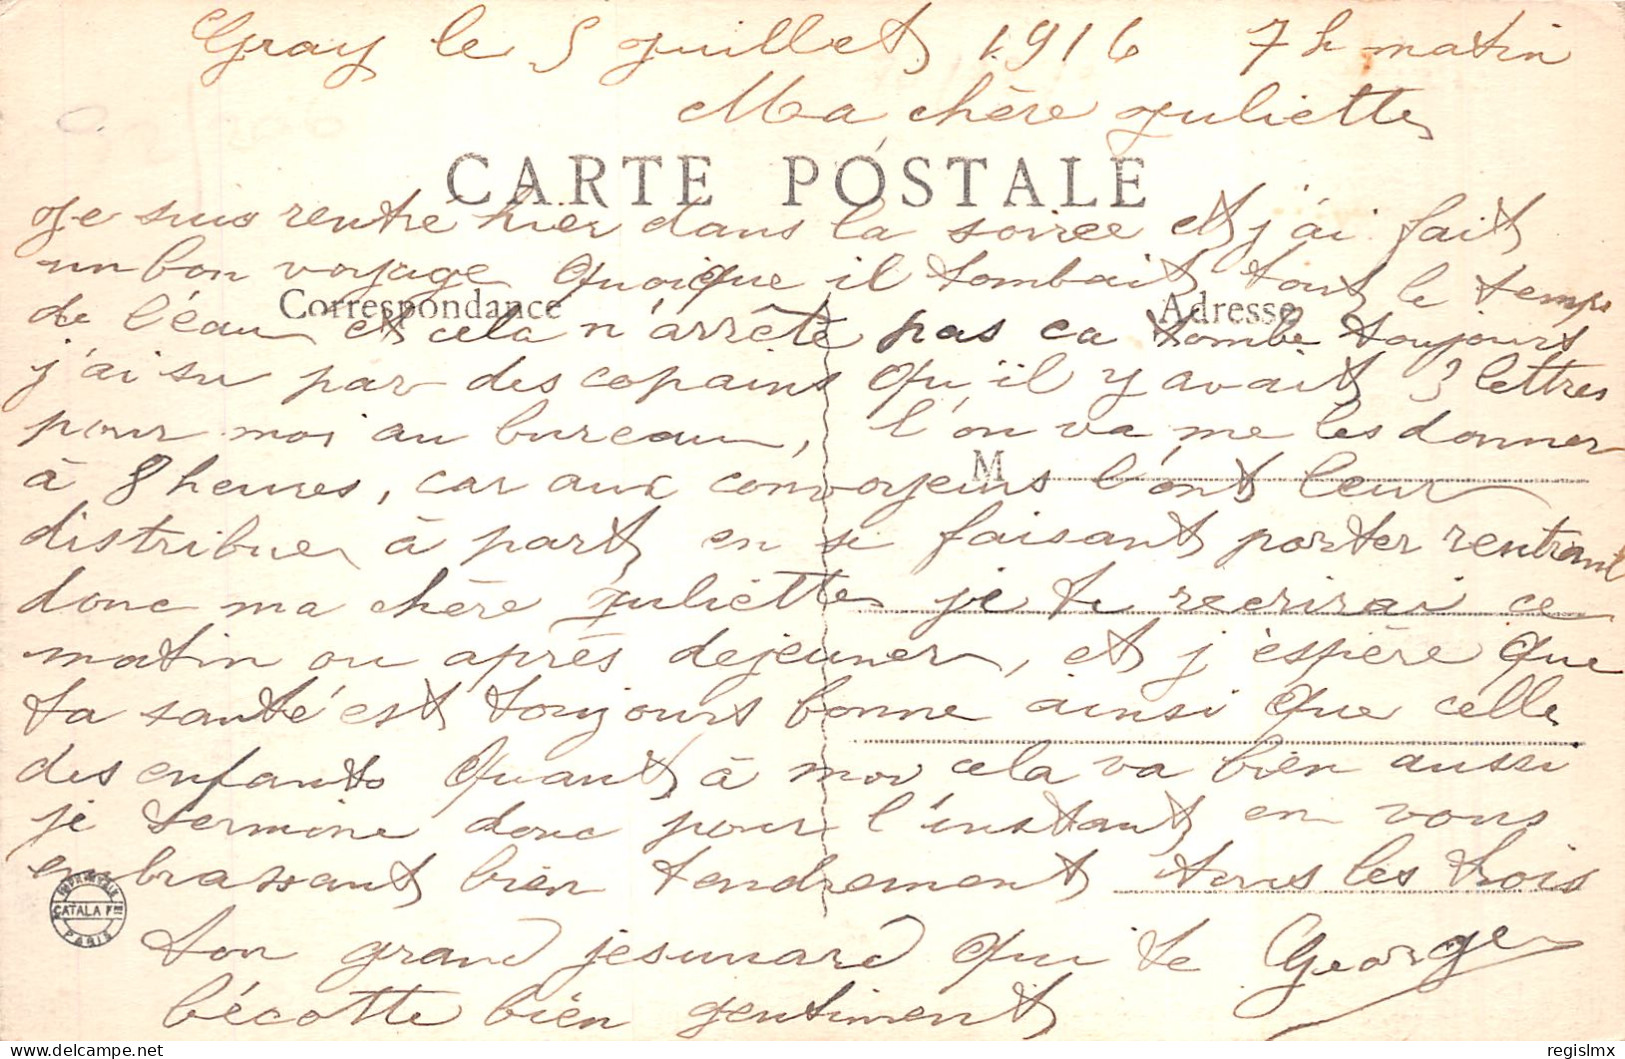 Gray le 5 juillet 1916 7 h matin
Ma chère Juliette
CARTE POSTALE
je suis rentre hier dans la soirée et j'ai fait
un bon voyage quoique il tombait tout le temps
Correspondance Adresse
de l'eau et cela n'arrête pas ca tombe toujours
j'ai su par des copains qu'il y avait 3 lettres
pour moi au bureau, l'on va me les donner
M
à 8 heures, car aux convoyeurs l'ont leur
distribue à part en se faisant porter rentrant
donc ma chère Juliette je te recrirai ce
matin ou après dejeuner, et j'espère que
ta santé est toujours bonne ainsi que celle
des enfants quant à moi cela va bien aussi
je termine donc pour l'instant en vous
embrassant bien tendrement tous les trois
IMPRIMERIE CATALA Fres PARIS
ton grand qui te George
bécotte bien gentiment
regislmx
delcampe.net